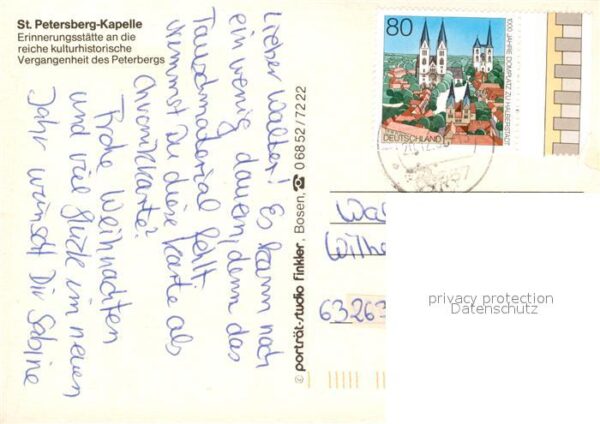 St. Petersberg-Kapelle
Erinnerungsstätte an die
reiche kulturhistorische
Vergangenheit des Peterbergs
Lieber Walter! Es kann noch
ein wenig dauern, denn das
Tauschmaterial fehlt
nimmst Du diese Karte als
Chronikkarte?
Frohe Weihnachten
und viel Glück im neuen
Jahr wünscht Dir Sabine
© porträt-studio finkler, Bosen, ☎ 06852/7222
80
DEUTSCHLAND
1000 JAHRE DOMPLATZ ZU HALBERSTADT
Wal
Wilhe
63263
privacy protection
Datenschutz